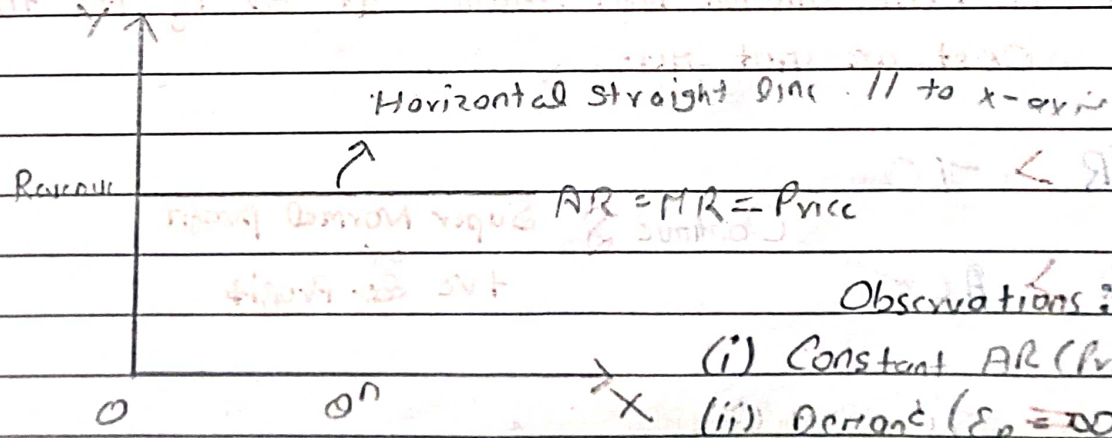 Y
Horizontal straight line. // to x-axis
Revenue
AR = MR = Price
Observations:
(i) Constant AR (Pr
O Qn X
(ii) Demand (ED = ∞